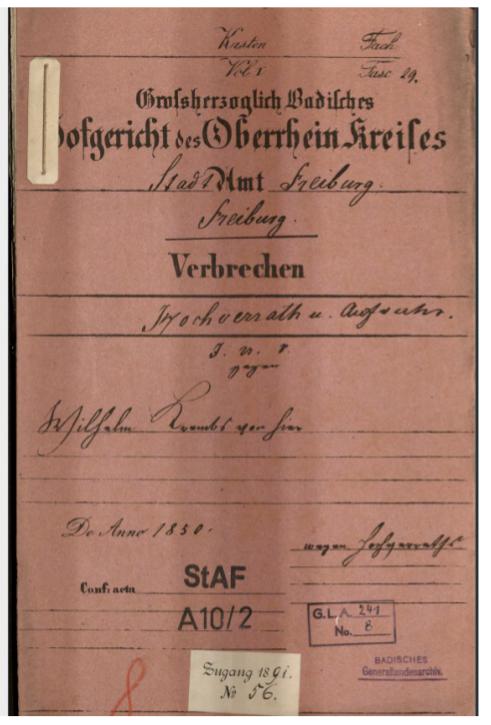 Kasten Fach
Vol. 1 Fasc 29.
Großherzoglich Badisches
Hofgericht des Oberrhein Kreises
Stadt Amt Freiburg.
Freiburg.
Verbrechen
Hochverrath u. Aufruhr.
J. U. S.
gegen
Wilhelm Krembs von hier
De Anno 1850.
wegen Hochverraths
Conf: acta
StAF
A10/2
G.L.A. 241
No. 8
BADISCHES
Generallandesarchiv.
Zugang 1891.
No 56.
8